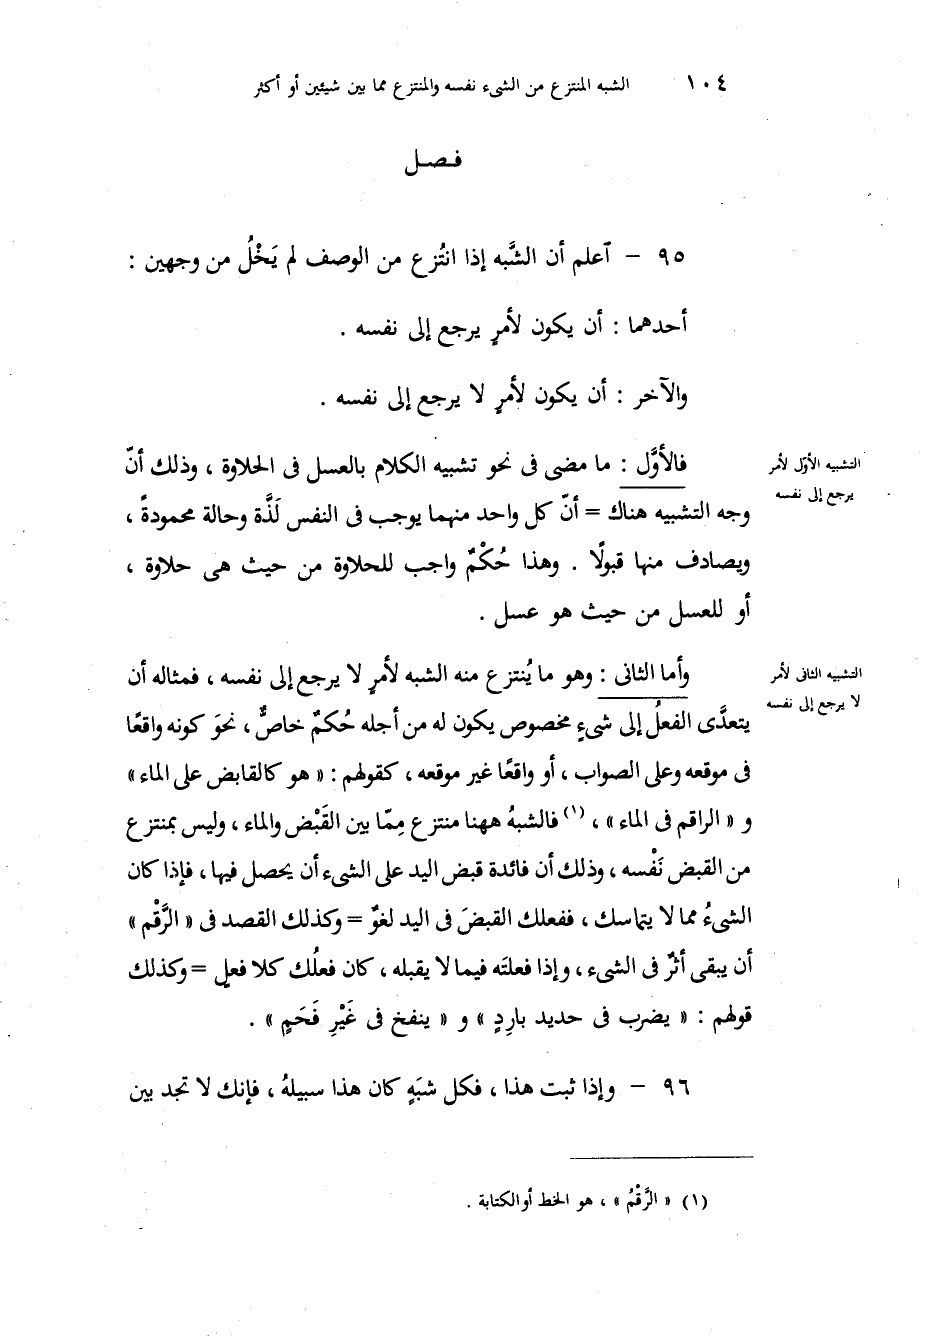 ١٠٤ الشبه المنتزع من الشىء نفسه والمنتزع مما بين شيئين أو أكثر
فـصـل
٩٥ – آعلم أن الشَّبه إذا انتُزع من الوصف لم يَخْلُ من وجهين :
أحدهما : أن يكون لأمرٍ يرجع إلى نفسه .
والآخر : أن يكون لأمرٍ لا يرجع إلى نفسه .
فالأوَّل : ما مضى فى نحو تشبيه الكلام بالعسل فى الحلاوة ، وذلك أنّ
التشبيه الأوّل لأمر
يرجع إلى نفسه
وجه التشبيه هناك = أنّ كل واحد منهما يوجب فى النفس لَذَّة وحالة محمودةً ،
ويصادف منها قبولًا . وهذا حُكْمٌ واجب للحلاوة من حيث هى حلاوة ،
أو للعسل من حيث هو عسل .
وأما الثانى : وهو ما يُنتزع منه الشبه لأمرٍ لا يرجع إلى نفسه ، فمثاله أن
التشبيه الثانى لأمر
لا يرجع إلى نفسه
يتعدَّى الفعلُ إلى شىءٍ مخصوص يكون له من أجله حُكمٌ خاصٌّ ، نحوَ كونه واقعًا
فى موقعه وعلى الصواب ، أو واقعًا غير موقعه ، كقولهم : « هو كالقابض على الماء »
و « الراقم فى الماء » ، (١) فالشبهُ ههنا منتزع مِمّا بين القَبْض والماء ، وليس بمنتزع
من القبض نَفْسه ، وذلك أن فائدة قبض اليد على الشىء أن يحصل فيها ، فإذا كان
الشىءُ مما لا يتماسك ، ففعلك القبضَ فى اليد لغوٌ = وكذلك القصد فى « الرَّقْم »
أن يبقى أثرٌ فى الشىء ، وإذا فعلتَه فيما لا يقبله ، كان فعلُك كلا فعلٍ = وكذلك
قولهم : « يضرب فى حديد بارِدٍ » و « ينفخ فى غَيْرِ فَحَمٍ » .
٩٦ – وإذا ثبت هذا ، فكل شبَهٍ كان هذا سبيلهُ ، فإنك لا تجد بين
(١) « الرَّقْمُ » ، هو الخط أو الكتابة .